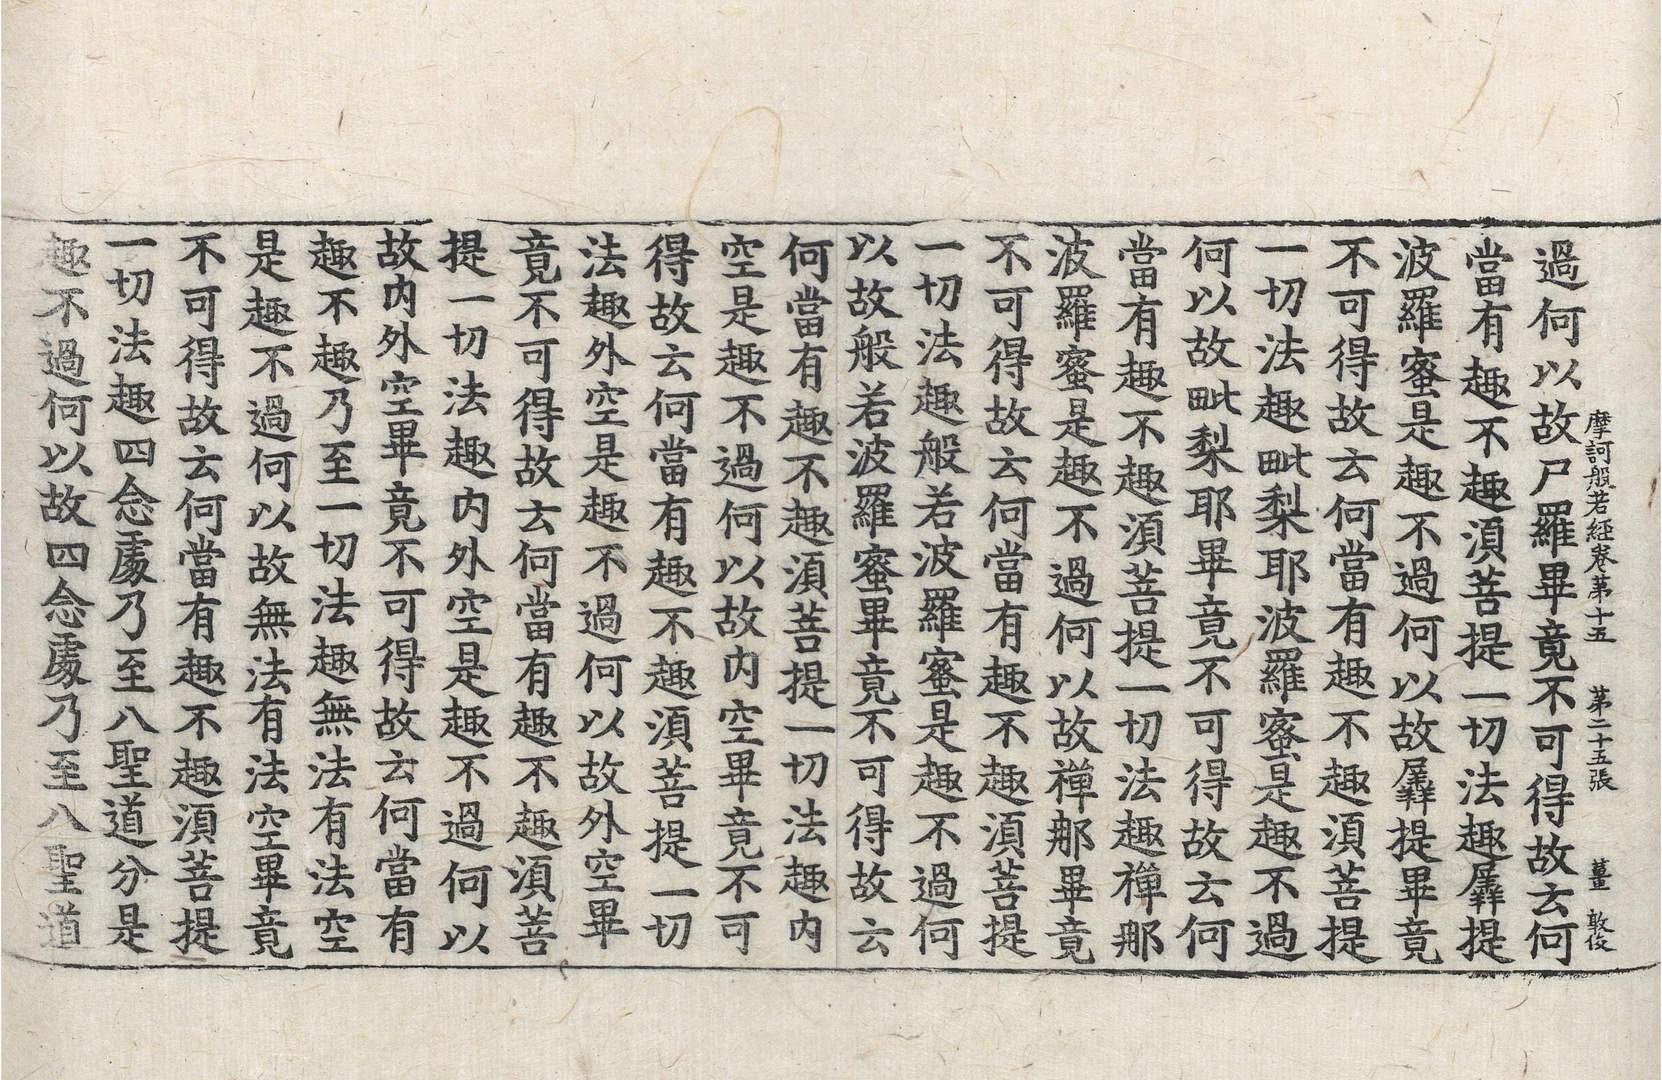 摩訶般若經卷第十五 第二十五張 薑 敦俊
過何以故尸羅畢竟不可得故云何
當有趣不趣須菩提一切法趣羼提
波羅蜜是趣不過何以故羼提畢竟
不可得故云何當有趣不趣須菩提
一切法趣毗梨耶波羅蜜是趣不過
何以故毗梨耶畢竟不可得故云何
當有趣不趣須菩提一切法趣禪那
波羅蜜是趣不過何以故禪那畢竟
不可得故云何當有趣不趣須菩提
一切法趣般若波羅蜜是趣不過何
以故般若波羅蜜畢竟不可得故云
何當有趣不趣須菩提一切法趣内
空是趣不過何以故内空畢竟不可
得故云何當有趣不趣須菩提一切
法趣外空是趣不過何以故外空畢
竟不可得故云何當有趣不趣須菩
提一切法趣内外空是趣不過何以
故内外空畢竟不可得故云何當有
趣不趣乃至一切法趣無法有法空
是趣不過何以故無法有法空畢竟
不可得故云何當有趣不趣須菩提
一切法趣四念處乃至八聖道分是
趣不過何以故四念處乃至八聖道